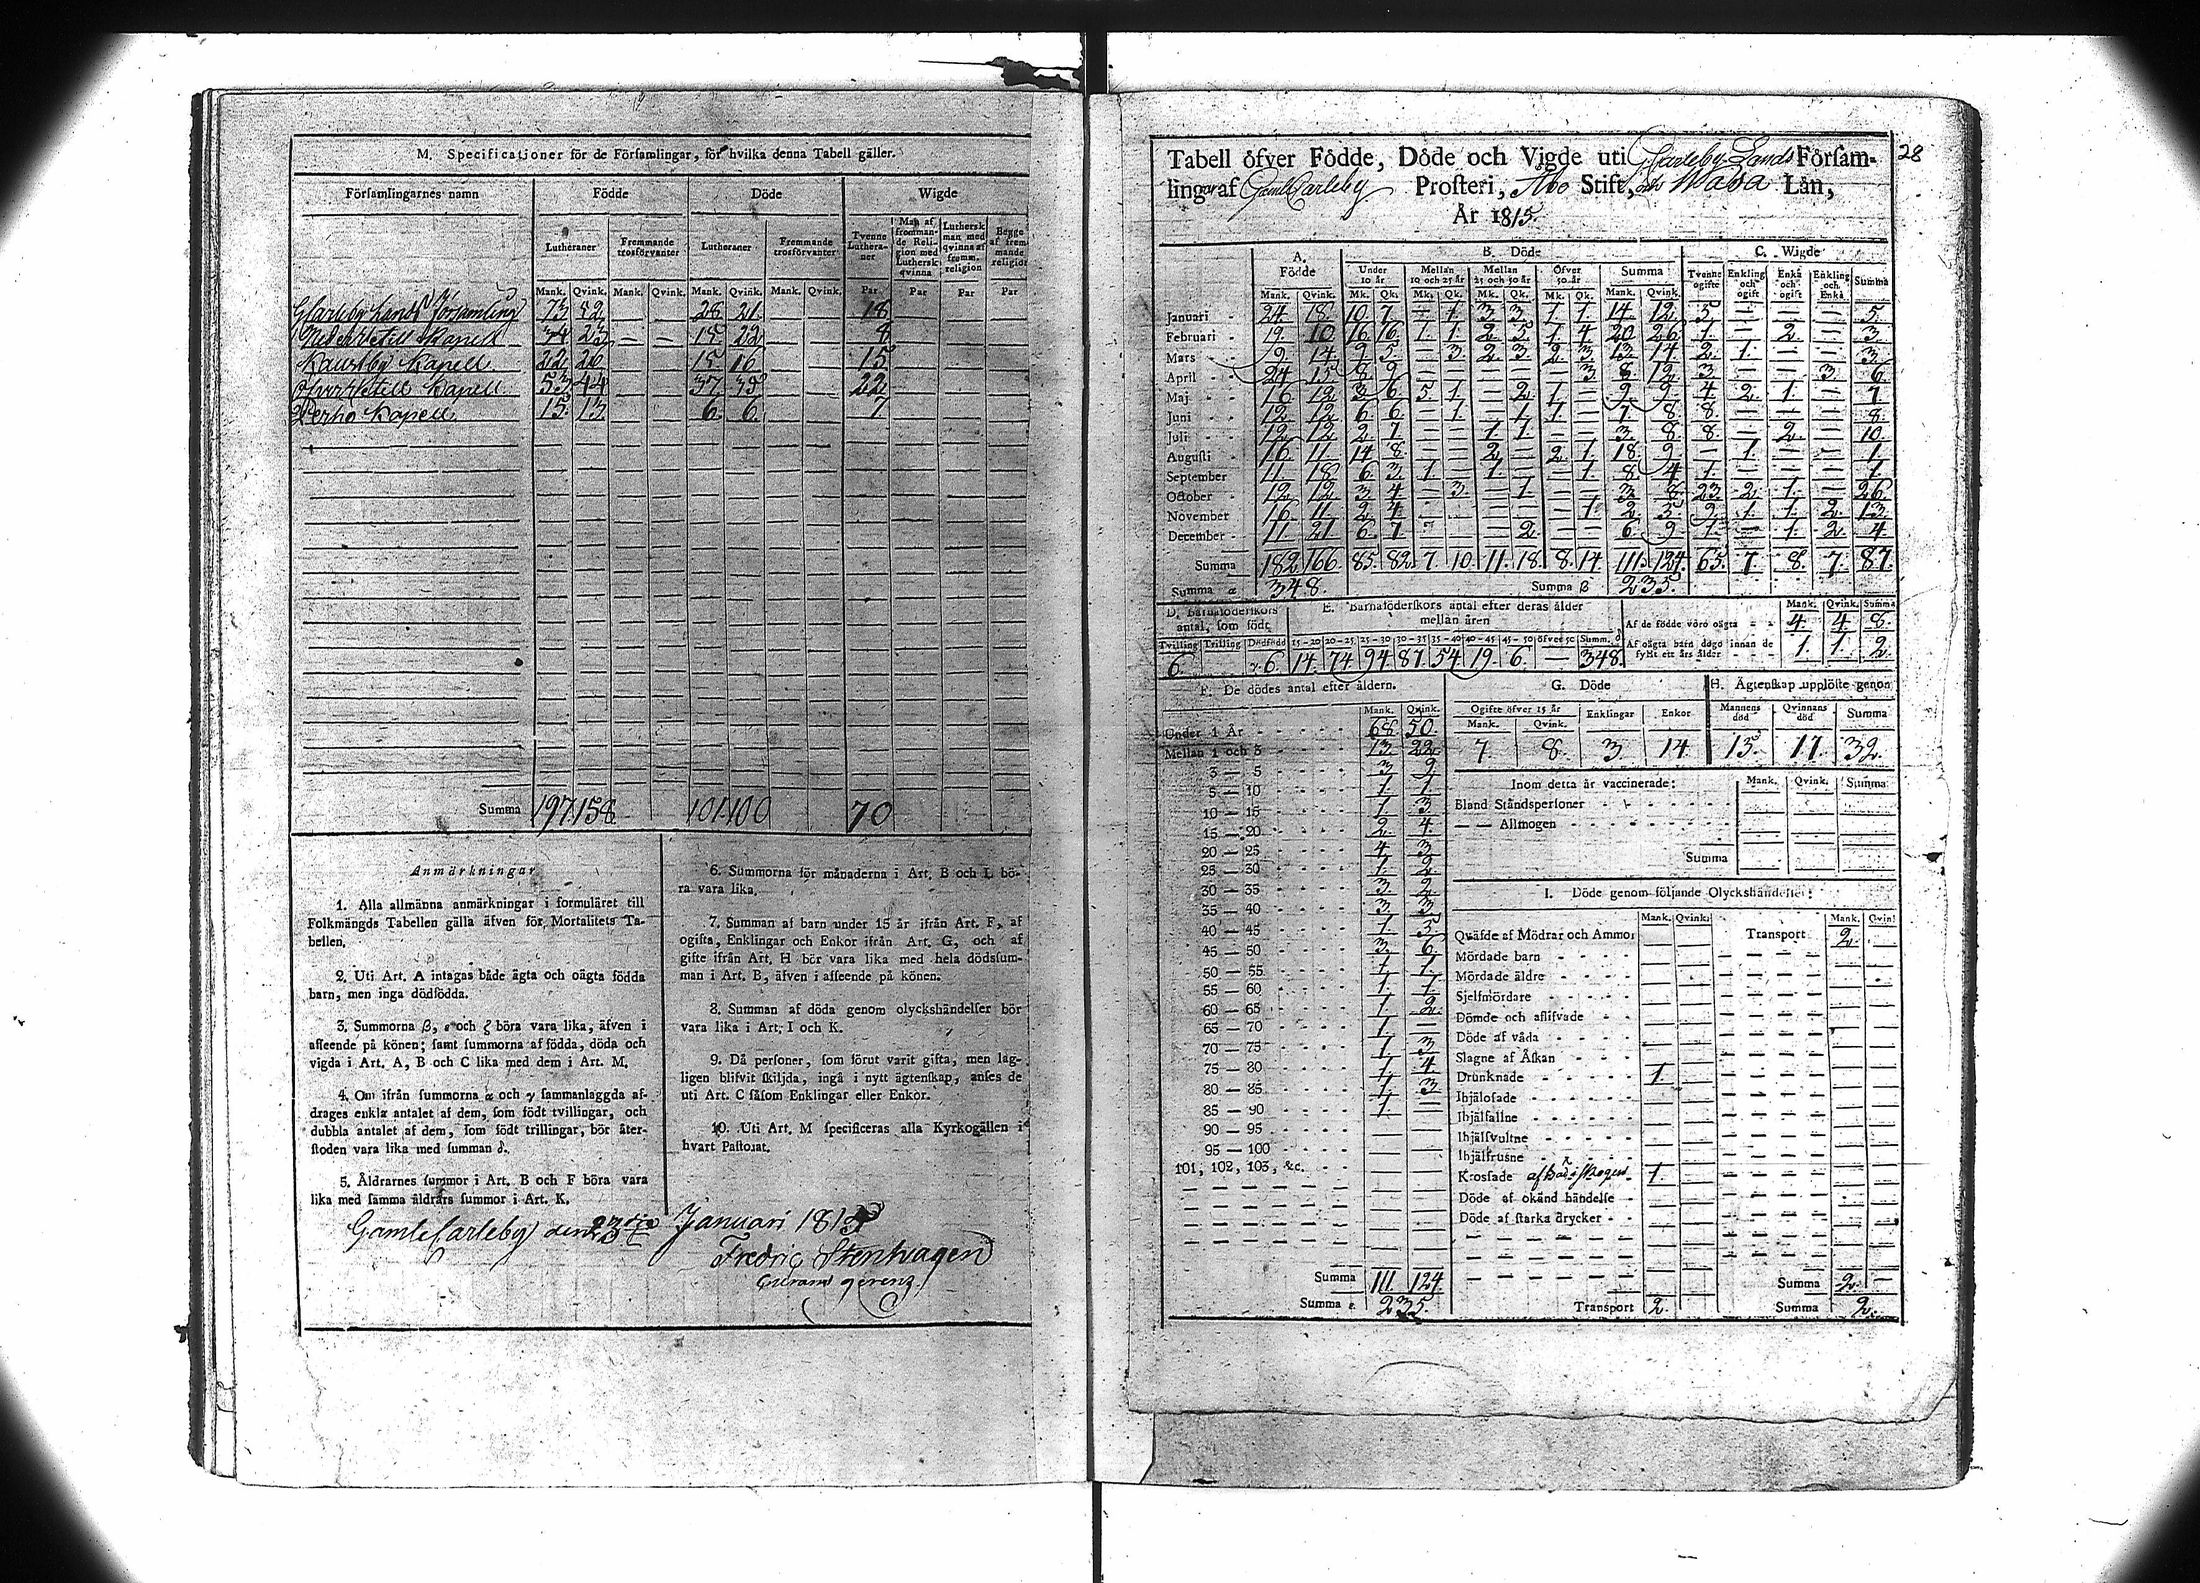 M. Specificationer för de Församlingar, för hvilka denna Tabell gäller.
Församlingarnes namn Födde Döde Wigde
Lutheraner Fremmande trosförvanter Lutheraner Fremmande trosförvanter Tvenne Lutheraner Man af fromman-de Reli-gion med Luthersk qvinna Luthersk man med qvinna af fremm. religion Begge af frem mande religion
Mank. Qvink. Mank. Qvink. Mank. Qvink. Mank. Qvink. Par Par Par Par
Glarleby Lands Församling 73 52 28 21 18
Neder Vetill Kapell 34 23 — — 15 22 8
Kaustby Kapell 22 26 15 16 15
Öfver Vetill Kapell 53 44 37 35 22
Perho Kapell 15 13 6 6 7
Summa 197 158 101 100 70
Anmärkningar
1. Alla allmänna anmärkningar i formuläret till
Folkmängds Tabellen gälla äfven för Mortalitets Ta-
bellen.
2. Uti Art. A intagas både ägta och oägta födda
barn, men inga dödfödda.
3. Summorna β, ε och ζ böra vara lika, äfven i
afseende på könen; samt summorna af födda, döda och
vigda i Art. A, B och C lika med dem i Art. M.
4. Om ifrån summorna α och γ sammanlaggda af-
drages enkla antalet af dem, som födt tvillingar, och
dubbla antalet af dem, som födt trillingar, bör åter-
stoden vara lika med summan δ.
5. Åldrarnes summor i Art. B och F böra vara
lika med samma åldrars summor i Art. K.
6. Summorna för månaderna i Art. B och L bö-
ra vara lika.
7. Summan af barn under 15 år ifrån Art. F, af
ogifta, Enklingar och Enkor ifrån Art. G, och af
gifte ifrån Art. H bör vara lika med hela dödssum-
man i Art. B, äfven i afseende på könen.
8. Summan af döda genom olyckshändelser bör
vara lika i Art. I och K.
9. Då personer, som förut varit gifta, men lag-
ligen blifvit skiljda, ingå i nytt ägtenskap, anses de
uti Art. C såsom Enklingar eller Enkor.
10. Uti Art. M specificeras alla Kyrkogällen i
hvart Pastorat.
GamleCarleby den 23 Januari 181
Fredric Stenhagen
28
Tabell öfver Födde, Döde och Vigde uti Glarleby Lands Försam-
lingar af GamleCarleby Prosteri, Åbo Stift, och Wasa Län,
År 1815.
A. Födde B. Döde C. Wigde
Under 10 år Mellan 10 och 25 år Mellan 25 och 50 år Öfver 50 år Summa Tvenne ogifte Enkling och ogift Enka och ogift Enkling och Enka Summa
Mank. Qvink. Mk. Qk. Mk. Qk. Mk. Qk. Mk. Qk. Mank. Qvink.
Januari 24 18 10 7 — 1 3 3 1 1 14 12 5 — — — 5
Februari 19 10 16 16 1 1 2 5 1 4 20 26 1 — 2 — 3
Mars 9 14 9 5 — 3 2 3 2 3 13 14 2 1 — — 3
April 24 15 8 9 — — — — — 3 8 12 3 — — 3 6
Maj 16 12 3 6 5 1 — 2 1 — 9 9 4 2 1 — 7
Juni 12 12 6 6 — 1 — 1 1 — 7 8 8 — — — 8
Juli 12 12 2 7 — — 1 1 — — 3 8 8 — 2 — 10
Augusti 16 11 14 8 — — 2 — 2 1 18 9 — 1 — — 1
September 11 18 6 3 1 — 1 — — 1 8 4 1 — — — 1
October 12 12 3 4 — 3 — 1 — — 3 8 23 2 1 — 26
November 16 11 2 4 — — — — — 1 2 5 9 1 1 2 13
December 11 21 6 7 — — — 2 — — 6 9 1 — 1 2 4
Summa 182 166 85 82 7 10 11 18 8 14 111 124 65 7 8 7 87
Summa α 348. Summa β 235.
D. Barnaföderskors antal, som födt E. Barnaföderskors antal efter deras ålder mellan åren
Tvilling Trilling Dödfödd 15—20 20—25 25—30 30—35 35—40 40—45 45—50 öfver 50 Summ. δ
6 γ 6 14 74 94 87 54 19 6 — 348
Mank. Qvink. Summa
Af de födde voro oägta 4 4 8
Af oägta barn dogo innan de fyllt ett års ålder 1 1 2
F. De dödes antal efter åldern.
Mank. Qvink.
Under 1 År 68 50
Mellan 1 och 3 13 22
3 — 5 3 9
5 — 10 1 1
10 — 15 1 3
15 — 20 2 4
20 — 25 4 3
25 — 30 1 2
30 — 35 3 2
35 — 40 3 3
40 — 45 1 5
45 — 50 3 6
50 — 55 1 1
55 — 60 1 1
60 — 65 1 2
65 — 70 1 —
70 — 75 1 3
75 — 80 1 4
80 — 85 1 3
85 — 90 1 —
90 — 95 — —
95 — 100 — —
101, 102, 103, &c. — —
Summa 111 124
Summa ε. 235.
G. Döde H. Ägtenskap upplöste genom
Ogifte öfver 15 år Enklingar Enkor Mannens död Qvinnans död Summa
Mank. Qvink.
7 8 3 14 15 17 32
Inom detta år vaccinerade: Mank. Qvink. Summa
Bland Ståndspersoner
— — Allmogen
Summa
I. Döde genom följande Olyckshändelser:
Mank. Qvink. Mank. Qvin
Qväfde af Mödrar och Ammor — — Transport 2 —
Mördade barn
Mördade äldre
Sjelfmördare
Dömde och aflifvade
Döde af våda
Slagne af Åskan
Drunknade 1
Ihjälosade
Ihjälfallne
Ihjälsvultne
Ihjälfrusne
Krossade 1
Döde af okänd händelse
Döde af starka drycker
Summa 2 —
Transport 2 Summa 2.